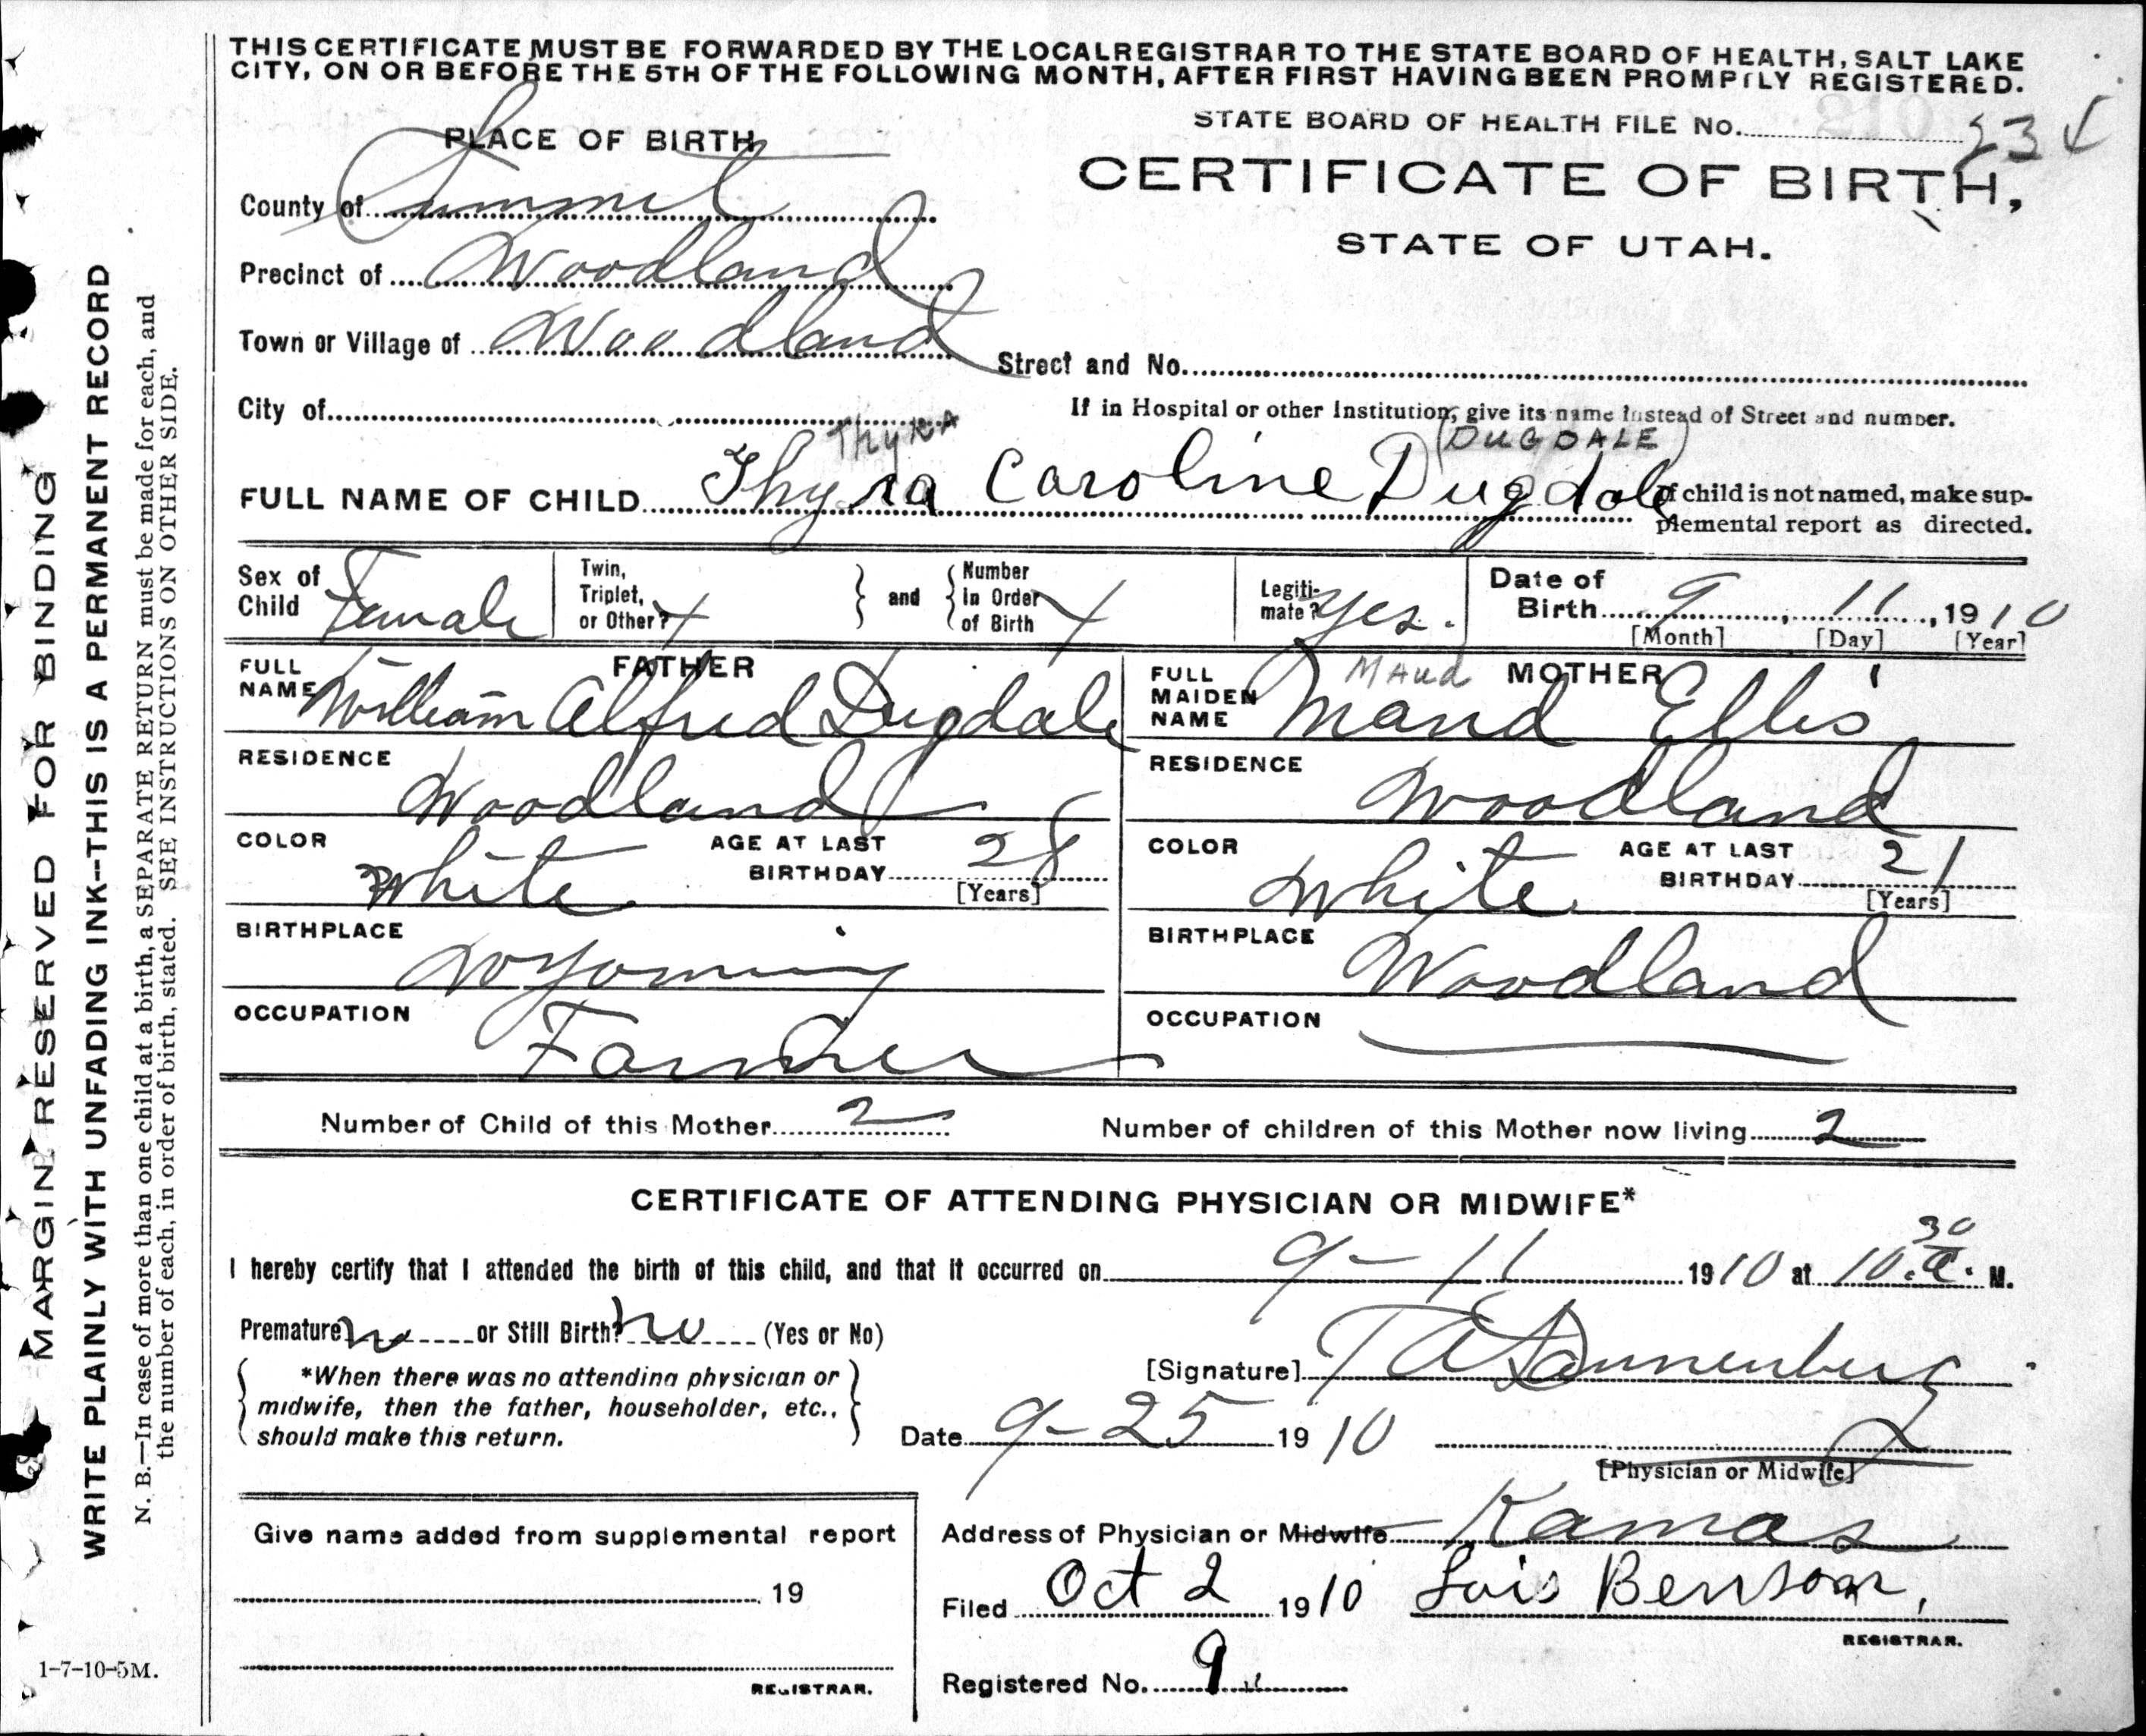 THIS CERTIFICATE MUST BE FORWARDED BY THE LOCAL REGISTRAR TO THE STATE BOARD OF HEALTH, SALT LAKE
CITY, ON OR BEFORE THE 5TH OF THE FOLLOWING MONTH, AFTER FIRST HAVING BEEN PROMPTLY REGISTERED.
STATE BOARD OF HEALTH FILE No.
PLACE OF BIRTH
CERTIFICATE OF BIRTH,
STATE OF UTAH.
County of Summit
Precinct of Woodland
Town or Village of Woodland
Street and No.
City of
If in Hospital or other Institution, give its name instead of Street and number.
Thyra (DUGDALE)
FULL NAME OF CHILD Thyra Caroline Dugdale
If child is not named, make sup-
plemental report as directed.
Sex of Child Female
Twin, Triplet, or Other? X and Number in Order of Birth X
Legiti-mate? Yes.
Date of Birth 9 11, 1910
[Month] [Day] [Year]
FATHER
FULL NAME William Alfred Dugdale
RESIDENCE
Woodland
COLOR White
AGE AT LAST BIRTHDAY 28
[Years]
BIRTHPLACE
Wyoming
OCCUPATION
Farmer
MOTHER
Maud
FULL MAIDEN NAME Maud Ellis
RESIDENCE
Woodland
COLOR White
AGE AT LAST BIRTHDAY 21
[Years]
BIRTHPLACE
Woodland
OCCUPATION
Number of Child of this Mother 2
Number of children of this Mother now living 2
CERTIFICATE OF ATTENDING PHYSICIAN OR MIDWIFE*
I hereby certify that I attended the birth of this child, and that it occurred on 9-11 1910 at 10.30 a. M.
Premature? no or Still Birth? no (Yes or No)
*When there was no attending physician or
midwife, then the father, householder, etc.,
should make this return.
[Signature] T A Dannenberg
Date 9-25 1910
[Physician or Midwife]
Address of Physician or Midwife Kamas
Filed Oct 2 1910 Lois Benson,
REGISTRAR.
Registered No. 9
Give name added from supplemental report
19
REGISTRAR.
MARGIN RESERVED FOR BINDING
WRITE PLAINLY WITH UNFADING INK--THIS IS A PERMANENT RECORD
N. B.—In case of more than one child at a birth, a SEPARATE RETURN must be made for each, and
the number of each, in order of birth, stated. SEE INSTRUCTIONS ON OTHER SIDE.
1-7-10-5M.